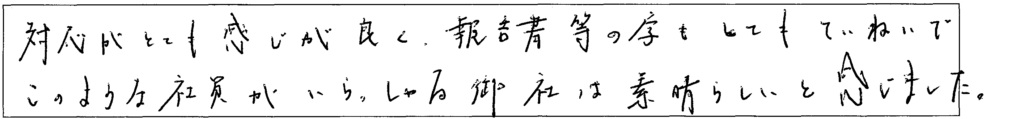 対応がとても感じが良く、報告書等の字もとてもていねいで
このような社員がいらっしゃる御社は素晴らしいと感じました。